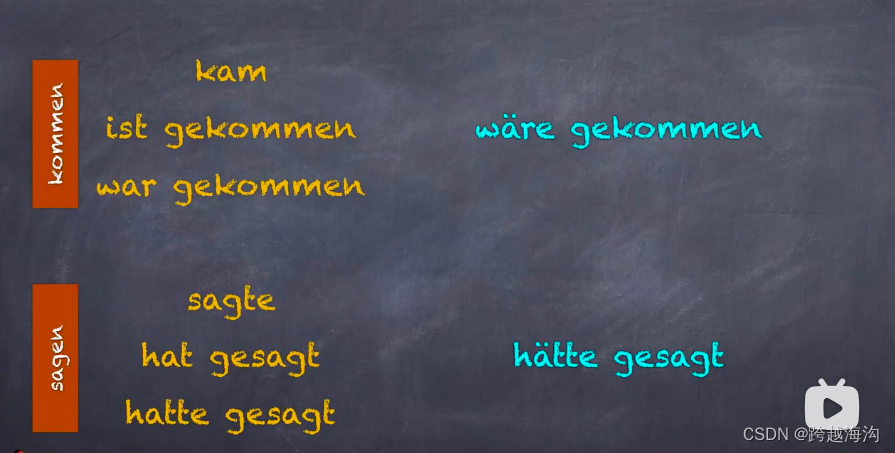 kommen
kam
ist gekommen
wäre gekommen
war gekommen
sagen
sagte
hat gesagt
hätte gesagt
hatte gesagt
CSDN @跨越海沟